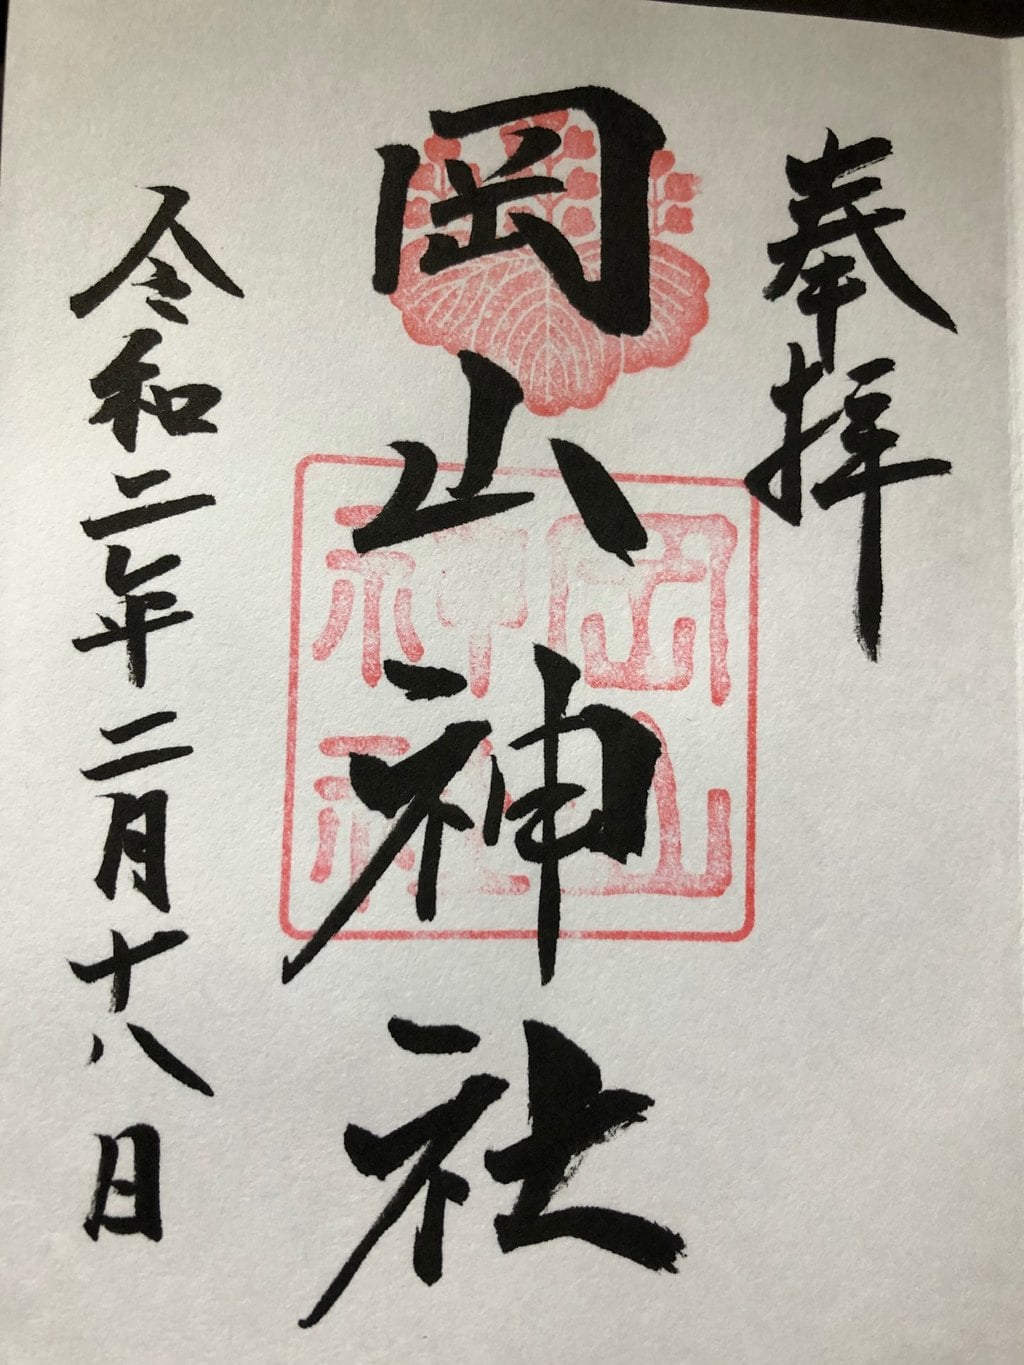 奉拝
岡山神社
岡山
神社
令和二年二月十八日